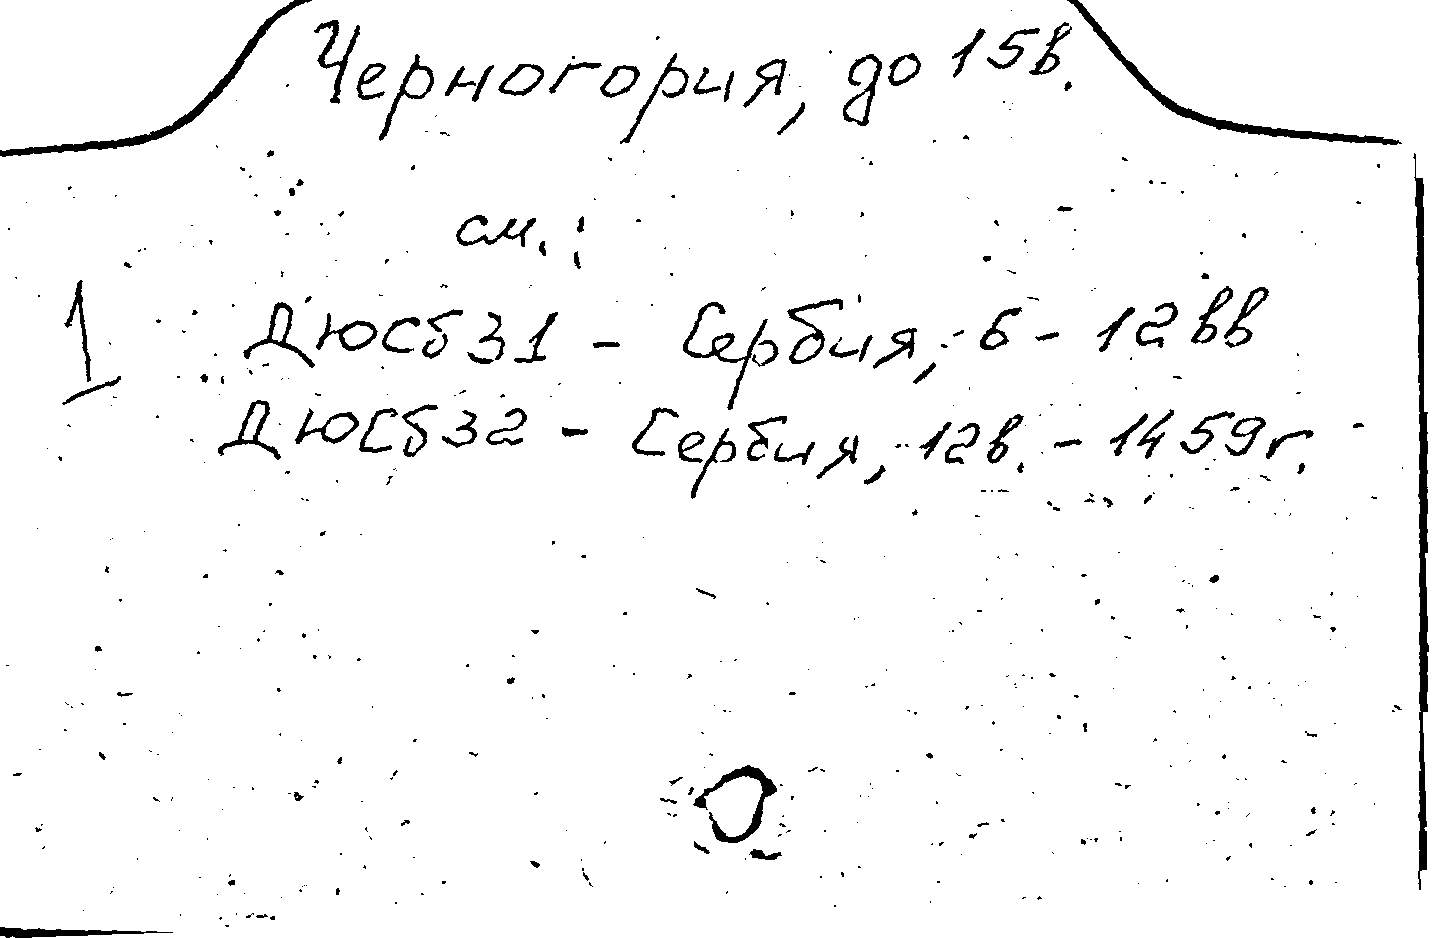 Черногория, до 15в.
см.:
1
ДЮСб31 - Сербия, 6 - 12вв
ДЮСб32 - Сербия, 12в. - 1459г.